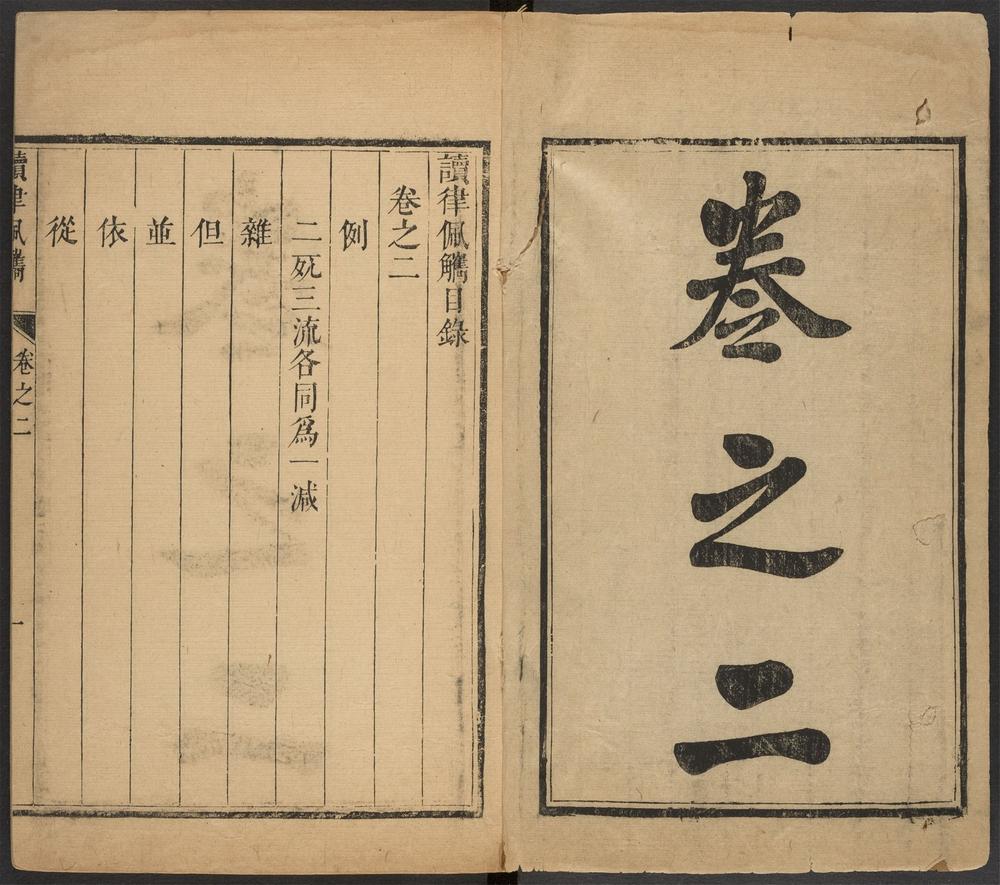 卷之二
讀律佩觿目錄
卷之二
例
二死三流各同爲一減
雜
但
並
依
從
讀律佩觿 卷之二 一